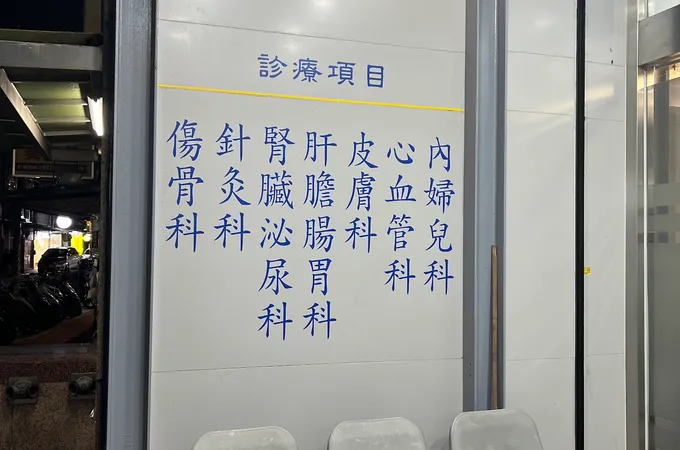 診療項目
內婦兒科
心血管科
皮膚科
肝膽腸胃科
腎臟泌尿科
針灸科
傷骨科